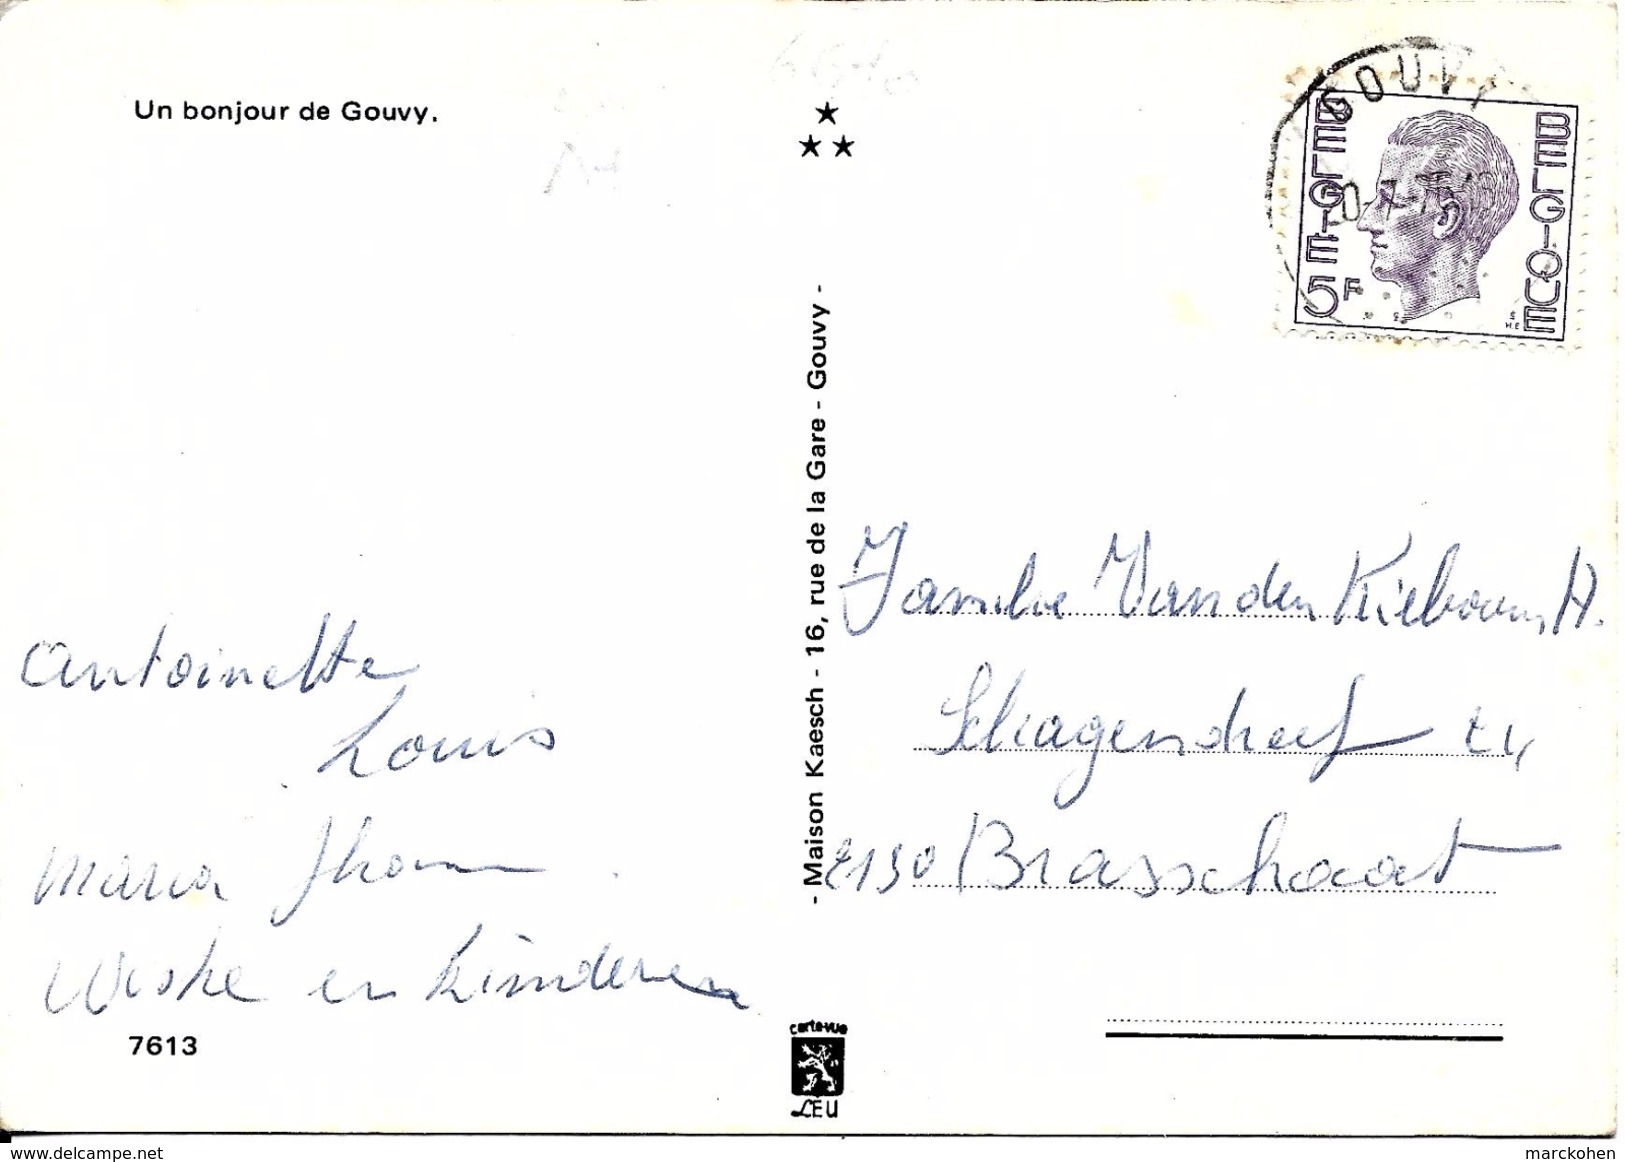 Un bonjour de Gouvy.
GOUVY
BELGIE
BELGIQUE
5F
- Maison Kaesch - 16, rue de la Gare - Gouvy -
Antoinette
Louis
Maria
Wiske en kinderen
7613
carte-vue
LEU
Familie Van den Kieboom H.
2130 Brasschaat
www.delcampe.net
marckohen